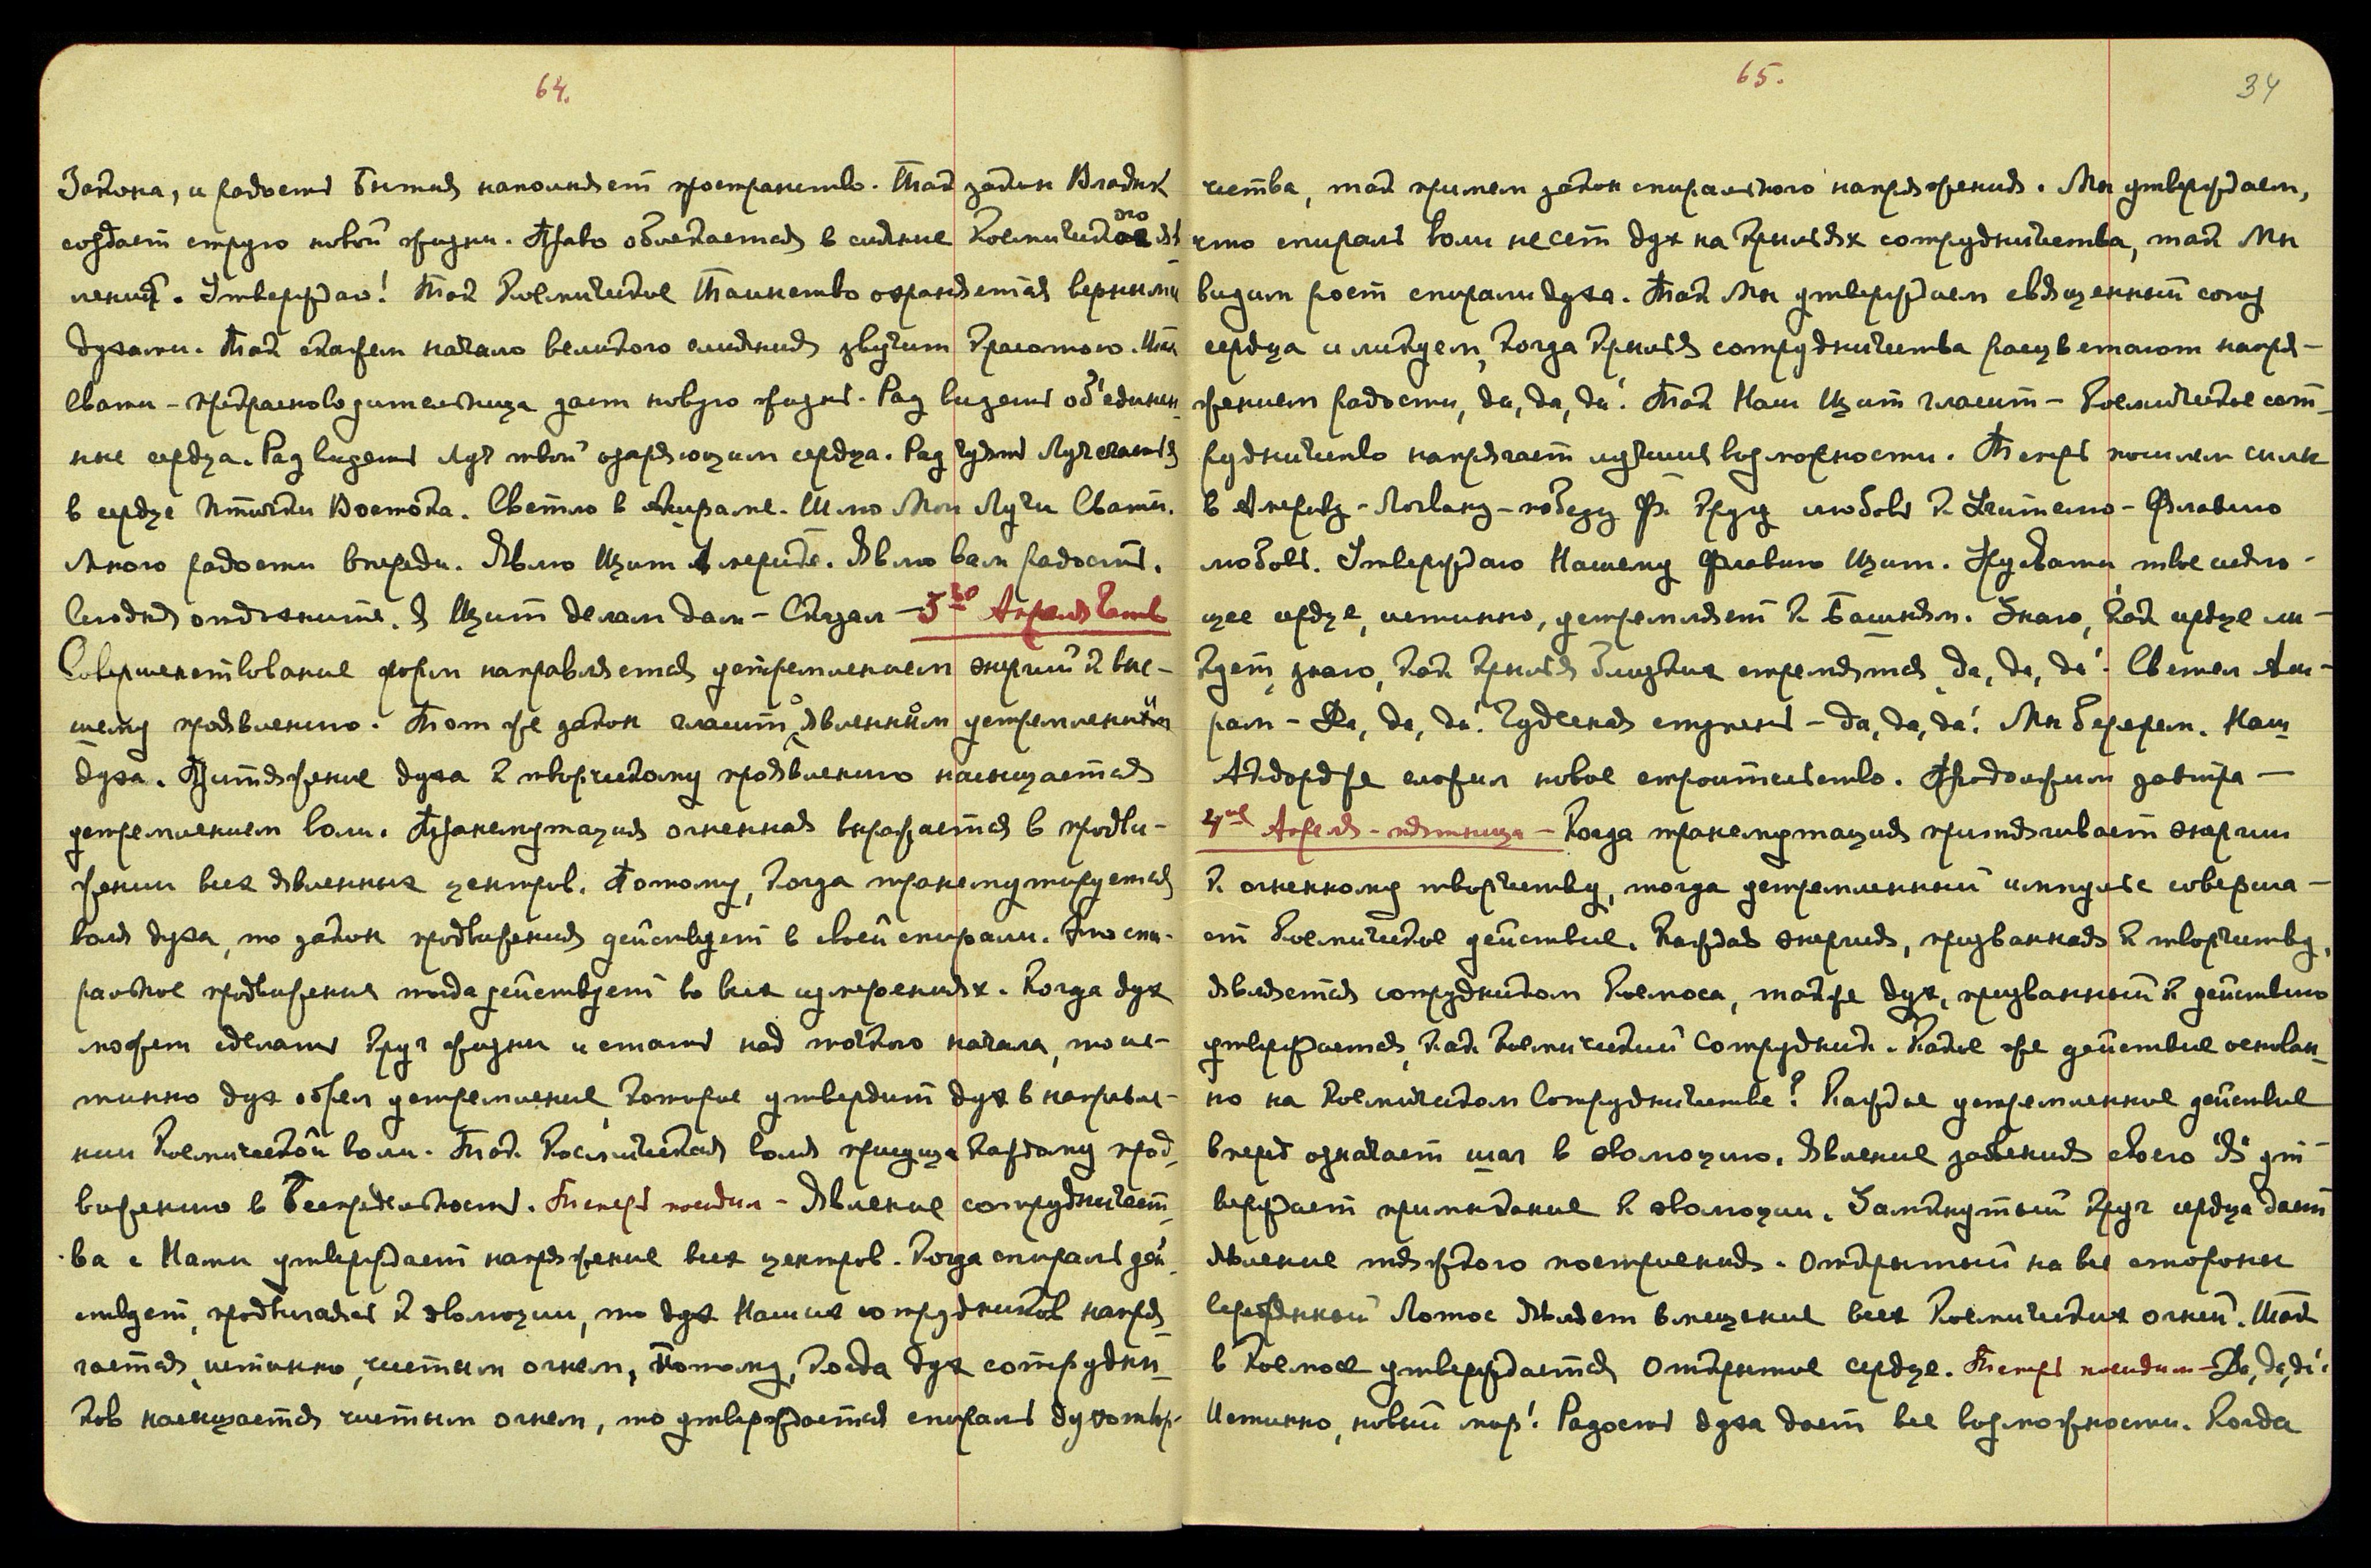 64.
Закона, и радость Бытия наполняет пространство. Так закон Владык
создает струю новой жизни. Право облекается в сияние Космического яв-
ления. Утверждаю! Так Космическое Таинство охраняется верными
духами. Так скажем начало великого слияния звучит Красотою. Так
Свати – предрасноводительница дает новую жизнь. Рад видеть объединен-
ные сердца. Рад видеть Луч твой озаряющим сердца. Рад чуять Луч счастья
в сердце Птички Востока. Светло в Ашраме. Шлю Мои Лучи Свати.
Много радости впереди. Явлю Щит Америке. Явлю вам радость.
Сегодня отдохните. Я Щит делам дам – Сказал – 3го Апреля четв
Совершенствование форм направляется устремлением энергий к выс-
шему проявлению. Тот же закон гласит о явленном устремлении
духа. Притяжение духа к творческому проявлению насыщается
устремлением воли. Трансмутация огненная выражается в продви-
жении всех явленных центров. Потому, когда трансмутируется
воля духа, то закон продвижения действует в своей спирали. Это спи-
ральное продвижение тогда действует во всех измерениях. Когда дух
может сделать круг жизни и стать над точкою начала, то ис-
тинно дух обрел устремление, которое утвердит дух в направле-
нии Космической воли. Так Космическая воля присуща каждому прод-
вижению в Беспредельность. Теперь посидим – Явление сотрудничест-
ва с Нами утверждает напряжение всех центров. Когда спираль дей-
ствует, продвигаясь к эволюции, то дух Наших сотрудников напря-
гается, истинно, чистым огнем, Потому, когда дух сотрудни-
ков насыщается чистым огнем, то утверждается спираль духотвор-
65.
34
чества, так примем закон спирального напряжения. Мы утверждаем,
что спираль воли несет дух на крыльях сотрудничества, так Мы
видим рост спирали духа. Так Мы утверждаем священный союз
сердца и ликуем, когда крылья сотрудничества расцветают напря-
жением радости, да, да, да! Так Наш Щит гласит – Космическое сот-
рудничество напрягает лучшие возможности. Теперь пошлем силы
в Америку – Логвану – победу Ф. кругу любовь к Учителю – Флавию
любовь. Утверждаю Нашему Флавию Щит. Урусвати, твое сияю-
щее сердце, истинно, устремляет к Башням. Знаю, как сердце ли-
кует, знаю, как крылья близких стремятся, да, да, да! Светел Аш-
рам – Да, да, да! Чудесная ступень – да, да, да! Мы бережем. Наш
Акдордже сложил новое строительство. Продолжим завтра –
4ое Апреля – пятница – Когда трансмутация притягивает энергии
к огненному творчеству, тогда устремленный импульс соверша-
ет Космическое действие. Каждая энергия, призванная к творчеству,
является сотрудником Космоса, также дух, призванный к действию
утверждается, как космический Сотрудник. Какое же действие основан-
но на Космическом Сотрудничестве? Каждое устремленное действие
вперед означает шаг в эволюцию. Явление забвения своего "Я" ут-
верждает примыкание к эволюции. Замкнутый круг сердца дает
явление тяжкого построения. Открытый на все стороны
сердечный Лотос являет вмещение всех Космических огней. Так
в Космосе утверждается Открытое сердце. Теперь посидим – Да, да, да!
Истинно, новый мир! Радость духа дает все возможности. Когда